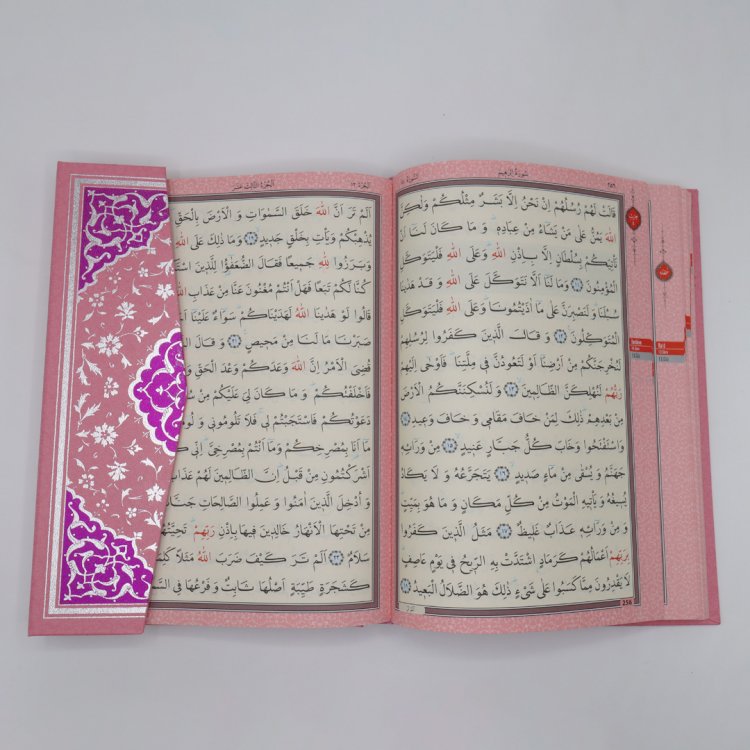 ٢٥٦ سُورَةُ اِبْرٰهِيمَ
قَالَتْ لَهُمْ رُسُلُهُمْ اِنْ نَحْنُ اِلَّا بَشَرٌ مِثْلُكُمْ وَلٰكِنَّ
اللّٰهَ يَمُنُّ عَلٰى مَنْ يَشَاءُ مِنْ عِبَادِهِ وَمَا كَانَ لَنَا اَنْ
نَأْتِيَكُمْ بِسُلْطَانٍ اِلَّا بِاِذْنِ اللّٰهِ وَعَلَى اللّٰهِ فَلْيَتَوَكَّلِ
الْمُؤْمِنُونَ ﴿١١﴾ وَمَا لَنَا اَلَّا نَتَوَكَّلَ عَلَى اللّٰهِ وَقَدْ هَدٰينَا
سُبُلَنَا وَلَنَصْبِرَنَّ عَلٰى مَا اٰذَيْتُمُونَا وَعَلَى اللّٰهِ فَلْيَتَوَكَّلِ
الْمُتَوَكِّلُونَ ﴿١٢﴾ وَقَالَ الَّذِينَ كَفَرُوا لِرُسُلِهِمْ
لَنُخْرِجَنَّكُمْ مِنْ اَرْضِنَا اَوْ لَتَعُودُنَّ فِي مِلَّتِنَا فَاَوْحٰى اِلَيْهِمْ
رَبُّهُمْ لَنُهْلِكَنَّ الظَّالِمِينَ ﴿١٣﴾ وَلَنُسْكِنَنَّكُمُ الْاَرْضَ
مِنْ بَعْدِهِمْ ذٰلِكَ لِمَنْ خَافَ مَقَامِي وَخَافَ وَعِيدِ ﴿١٤﴾
وَاسْتَفْتَحُوا وَخَابَ كُلُّ جَبَّارٍ عَنِيدٍ ﴿١٥﴾ مِنْ وَرَائِهِ
جَهَنَّمُ وَيُسْقٰى مِنْ مَاءٍ صَدِيدٍ ﴿١٦﴾ يَتَجَرَّعُهُ وَلَا يَكَادُ
يُسِيغُهُ وَيَأْتِيهِ الْمَوْتُ مِنْ كُلِّ مَكَانٍ وَمَا هُوَ بِمَيِّتٍ
وَمِنْ وَرَائِهِ عَذَابٌ غَلِيظٌ ﴿١٧﴾ مَثَلُ الَّذِينَ كَفَرُوا
بِرَبِّهِمْ اَعْمَالُهُمْ كَرَمَادٍ اشْتَدَّتْ بِهِ الرِّيحُ فِي يَوْمٍ عَاصِفٍ
لَا يَقْدِرُونَ مِمَّا كَسَبُوا عَلٰى شَيْءٍ ذٰلِكَ هُوَ الضَّلَالُ الْبَعِيدُ ﴿١٨﴾
256
اَلْجُزْءُ ١٣ اَلْجُزْءُ الثَّالِثَ عَشَرَ
اَلَمْ تَرَ اَنَّ اللّٰهَ خَلَقَ السَّمٰوَاتِ وَالْاَرْضَ بِالْحَقِّ
يُذْهِبْكُمْ وَيَأْتِ بِخَلْقٍ جَدِيدٍ ﴿١٩﴾ وَمَا ذٰلِكَ عَلَى اللّٰهِ
وَبَرَزُوا لِلّٰهِ جَمِيعًا فَقَالَ الضُّعَفٰؤُا لِلَّذِينَ
كُنَّا لَكُمْ تَبَعًا فَهَلْ اَنْتُمْ مُغْنُونَ عَنَّا مِنْ عَذَابِ اللّٰهِ
قَالُوا لَوْ هَدٰينَا اللّٰهُ لَهَدَيْنَاكُمْ سَوَاءٌ عَلَيْنَا
صَبَرْنَا مَا لَنَا مِنْ مَحِيصٍ ﴿٢١﴾ وَقَالَ
قُضِيَ الْاَمْرُ اِنَّ اللّٰهَ وَعَدَكُمْ وَعْدَ الْحَقِّ
فَاَخْلَفْتُكُمْ وَمَا كَانَ لِيَ عَلَيْكُمْ مِنْ
دَعَوْتُكُمْ فَاسْتَجَبْتُمْ لِي فَلَا تَلُومُونِي
مَا اَنَا بِمُصْرِخِكُمْ وَمَا اَنْتُمْ بِمُصْرِخِيَّ اِنِّي
اَشْرَكْتُمُونِ مِنْ قَبْلُ اِنَّ الظَّالِمِينَ لَهُمْ عَذَابٌ
وَاُدْخِلَ الَّذِينَ اٰمَنُوا وَعَمِلُوا الصَّالِحَاتِ
مِنْ تَحْتِهَا الْاَنْهَارُ خَالِدِينَ فِيهَا بِاِذْنِ رَبِّهِمْ تَحِيَّتُهُمْ
سَلَامٌ ﴿٢٣﴾ اَلَمْ تَرَ كَيْفَ ضَرَبَ اللّٰهُ مَثَلًا
كَشَجَرَةٍ طَيِّبَةٍ اَصْلُهَا ثَابِتٌ وَفَرْعُهَا فِي